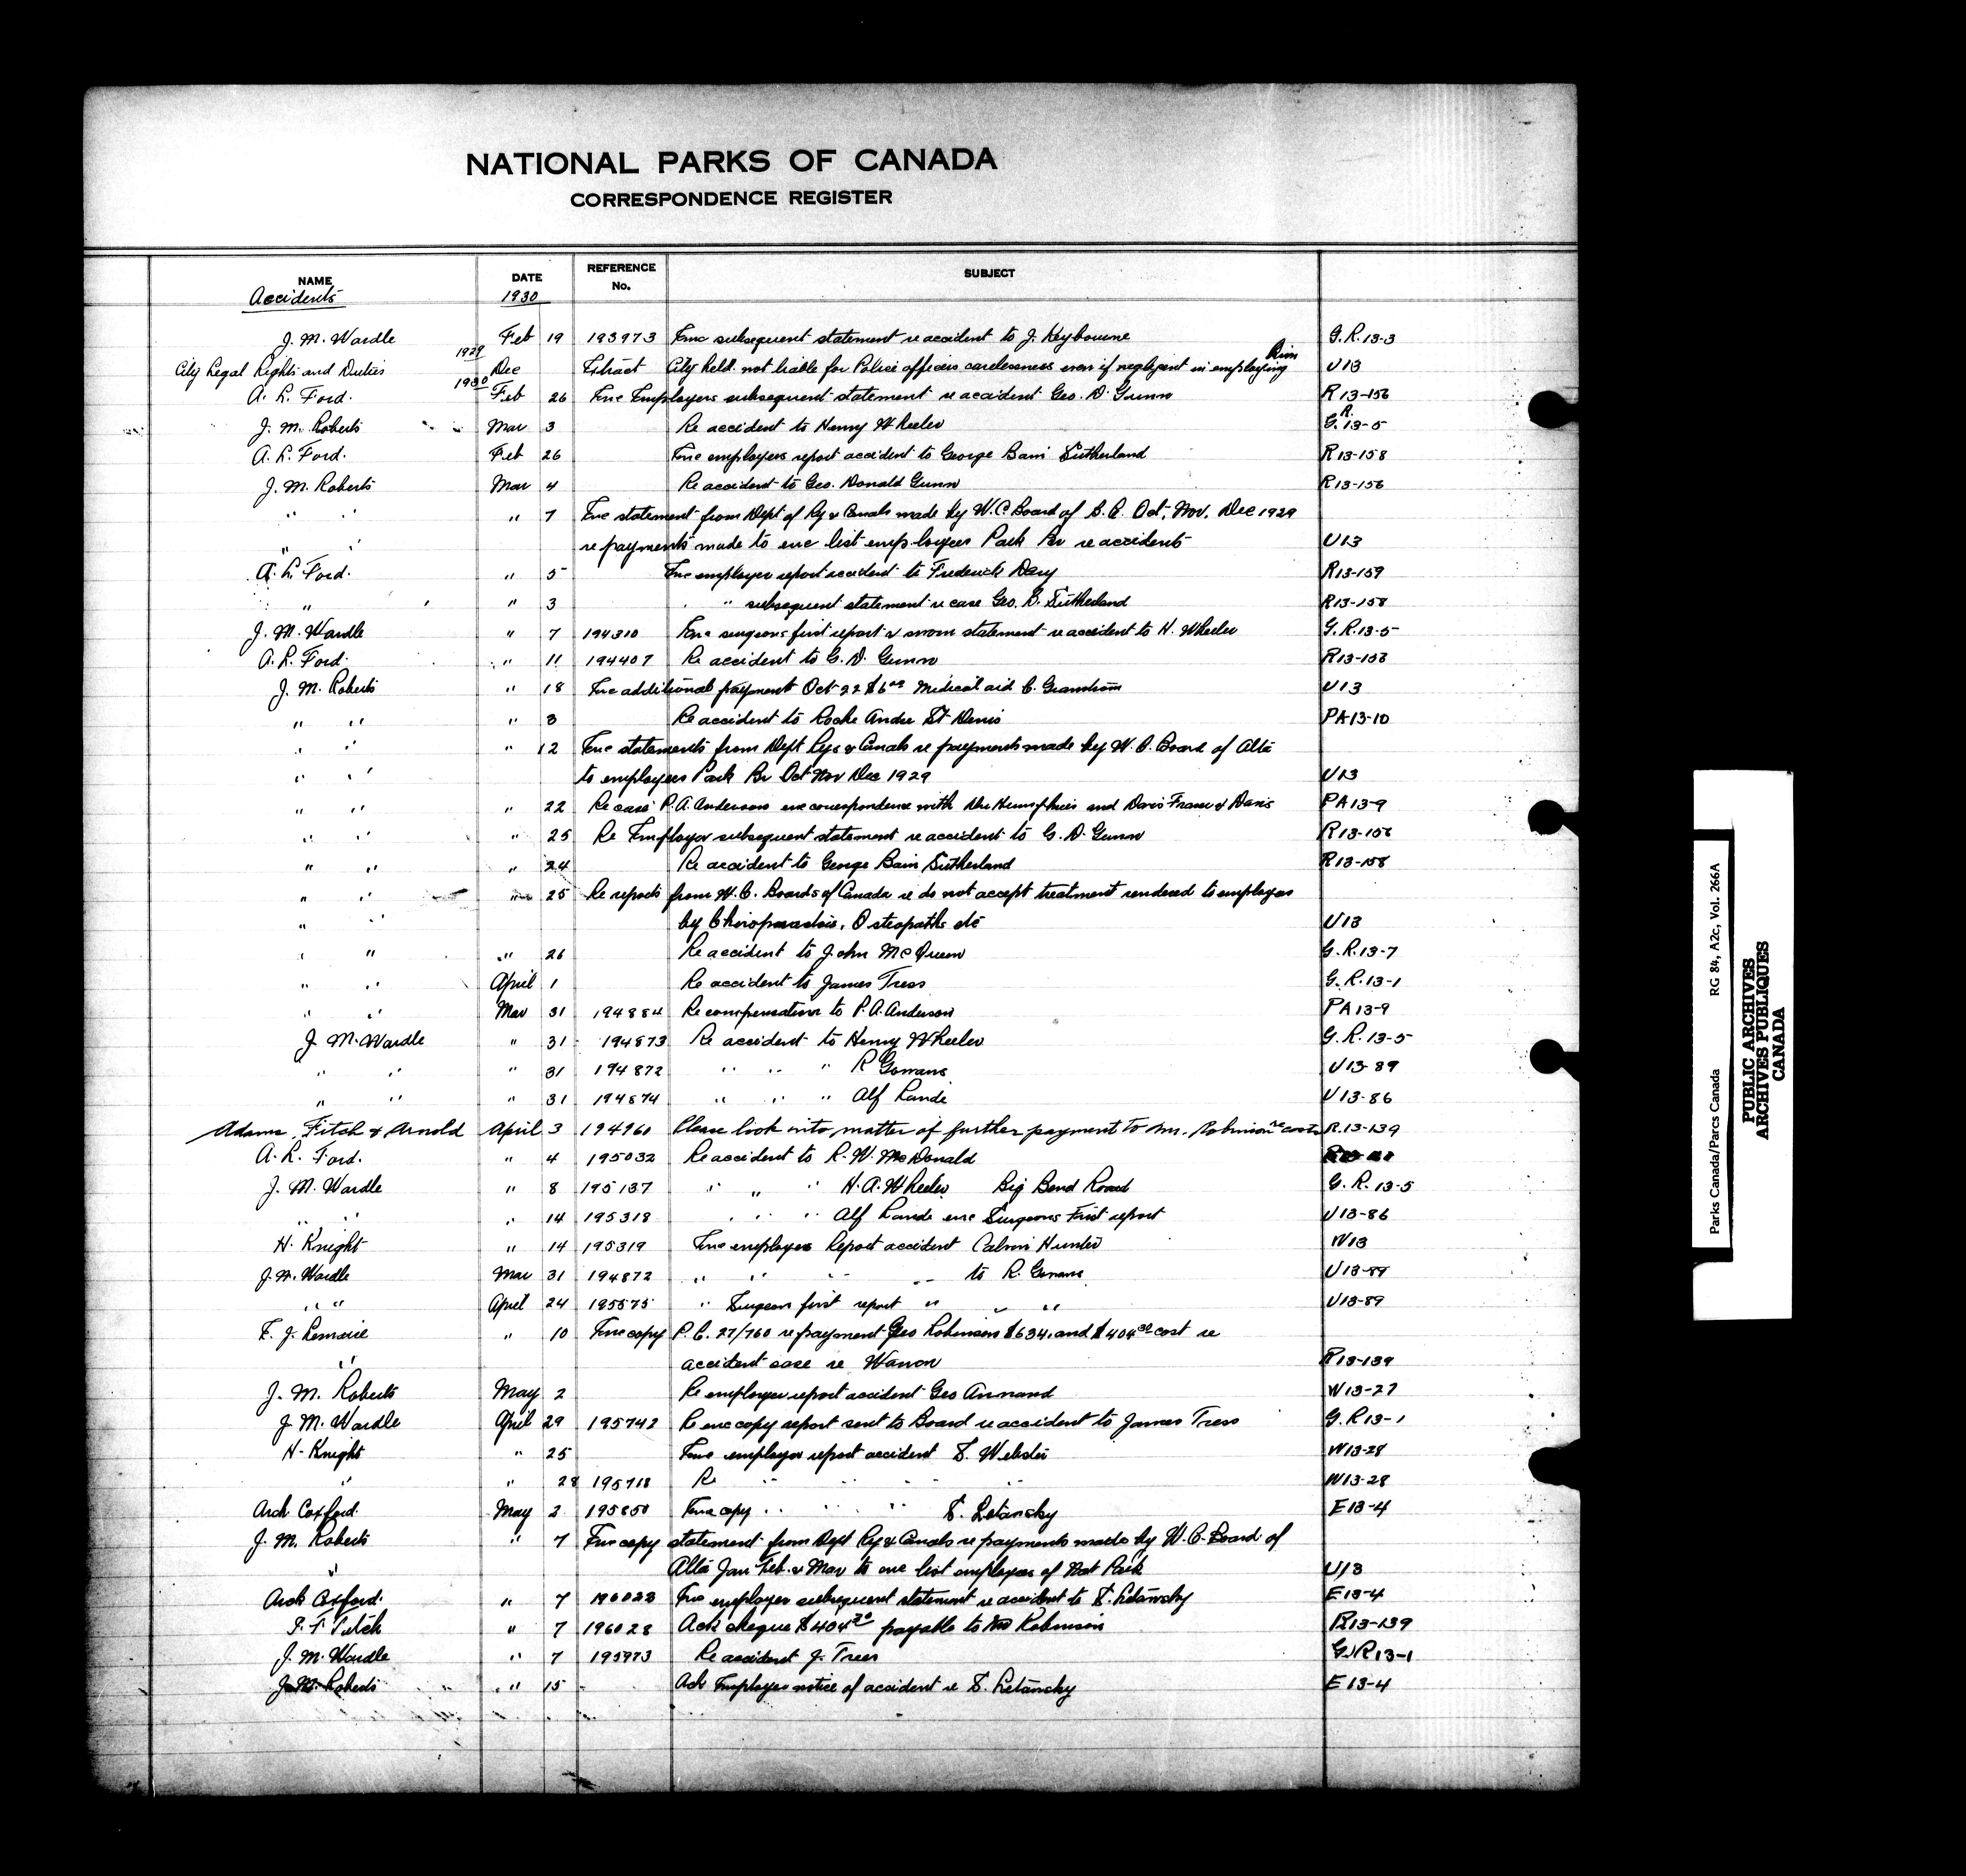 NATIONAL PARKS OF CANADA
CORRESPONDENCE REGISTER
NAME DATE REFERENCE No. SUBJECT
Accidents 1930
J. M. Wardle Feb 19 193973 Enc subsequent statement re accident to J. Keybourne G.R.13-3
City Legal Rights and Duties 1929 Dec Extract City held not liable for Police officers carelessness even if negligent in employing him U13
A. L. Ford. 1930 Feb 26 Enc Employers subsequent statement re accident Geo. D. Gunn R13-156
J. M. Roberts Mar 3 Re accident to Henry Wheeler G.R.13-5
A. L. Ford. Feb 26 Enc employers report accident to George Bain Sutherland R13-158
J. M. Roberts Mar 4 Re accident to Geo. Donald Gunn R13-156
" " " 7 Enc statement from Dept of Ry & Canals made by W.C Board of B.C. Oct, Nov, Dec 1929
" " re payments made to enc list employees Park Br re accidents U13
A. L. Ford. " 5 Enc employer report accident to Frederick Dery R13-159
" " 3 " subsequent statement re case Geo. B. Sutherland R13-158
J. M. Wardle " 7 194310 Enc surgeons first report & sworn statement re accident to H. Wheeler G.R.13-5
A. L. Ford. " 11 194407 Re accident to G. D. Gunn R13-156
J. M. Roberts " 18 Enc additional payment Oct 22 $6.00 Medical aid C. Grantham U13
" " " 3 Re accident to Roche Andre St Denis PA13-10
" " " 12 Enc statements from Dept Rys & Canals re payments made by W. C. Board of Alta
" " to employees Park Br Oct Nov Dec 1929 U13
" " " 22 Re case P. A. Anderson enc correspondence with Humphries and Davis Fraser & Davis PA13-9
" " " 25 Re Employer subsequent statement re accident to G. D. Gunn R13-156
" " " 24 Re accident to George Bain Sutherland R13-158
" " " 25 Re reports from W.C. Boards of Canada re do not accept treatment rendered to employees
" " by Chiropractors, Osteopaths etc U13
" " " 26 Re accident to John McQueen G.R.13-7
" " April 1 Re accident to James Tress G.R.13-1
" " Mar 31 194884 Re compensation to P. A. Anderson PA13-9
J. M. Wardle " 31 194873 Re accident to Henry Wheeler G.R.13-5
" " " 31 194872 " " " R Gowans U13-89
" " " 31 194874 " " " Alf Lande U13-86
Adams, Fitch & Arnold April 3 194960 Please look into matter of further payment to Mr. Robinson re costs R.13-139
A. L. Ford. " 4 195032 Re accident to R. W. McDonald
J. M. Wardle " 8 195137 " " " H. A. Wheeler Big Bend Road G.R.13-5
" " " 14 195318 " " " Alf Lande enc Surgeons First report U13-86
H. Knight " 14 195319 Enc employer Report accident Calvin Hunter W13
J. M. Wardle Mar 31 194872 " " " " to R. Gowans U13-89
" " April 24 195575 " Surgeon first report " " " U13-89
F. J. Lemaire " 10 Enc copy P.C. 27/760 re payment Geo Robinson $634. and $404.30 cost re
" accident case re Warron R13-139
J. M. Roberts May 2 Re employer report accident Geo Annand W13-27
J. M. Wardle April 29 195742 Re enc copy report sent to Board re accident to James Tress G.R13-1
H. Knight " 25 Enc employer report accident S. Webster W13-28
" " 28 195718 Re " " " " W13-28
Arch Coxford. May 2 195850 Enc copy " " " S. Letansky E13-4
J. M. Roberts " 7 Enc copy statement from Dept Ry & Canals re payments made by W. C. Board of
" Alta Jan Feb. & Mar to enc list employees of Nat Park U13
Arch Coxford. " 7 196023 Enc employer subsequent statement re accident to S. Letansky E13-4
" 7 196028 Ack cheque $404.30 payable to Robinson R13-139
J. M. Wardle " 7 195973 Re accident J. Tress G.R13-1
J. M. Roberts " 15 Ack Employer notice of accident re S. Letansky E13-4
Parks Canada/Parcs Canada RG 84, A2c, Vol. 266A
PUBLIC ARCHIVES
ARCHIVES PUBLIQUES
CANADA